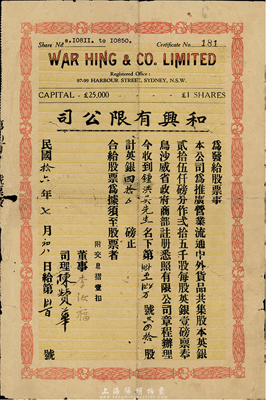 Share No s.10811. to 10850.
Certificate No 181
WAR HING & CO. LIMITED
Registered Office:
97-99 HARBOUR STREET, SYDNEY, N.S.W.
CAPITAL - £25,000 - £1 SHARES
司公限有興和
為發給股票事
本公司為推廣營業流通中外貨品共集股本英銀
貳拾伍仟磅分作弍拾五千股每股英銀壹磅票奉
鳥沙威省政府商部註册悉照有限公司章程辦理
今收到 先生名下第 股
計英銀四拾 磅正
附交息摺壹扣
合給股票為據須至股票者
董事
司理 陳
民國拾六年七月初八日給第 號